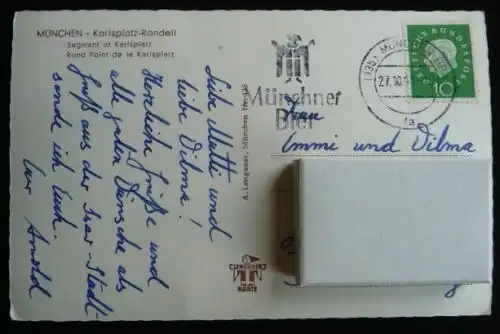 MÜNCHEN - Karlsplatz-Rondell
Segment of Karlsplatz
Rond Point de la Karlsplatz
Liebe Mutti und
liebe Dilma!
Herzliche Grüße und
alle guten Wünsche als
Gruß aus der Isar-Stadt
sende ich Euch.
Euer Arnold
A. Lengauer, München
(13b) MÜNCHEN
27.10.
Münchner
Bier
DEUTSCHE BUNDESPOST
10
Frau
Emmi und Dilma
KARTE